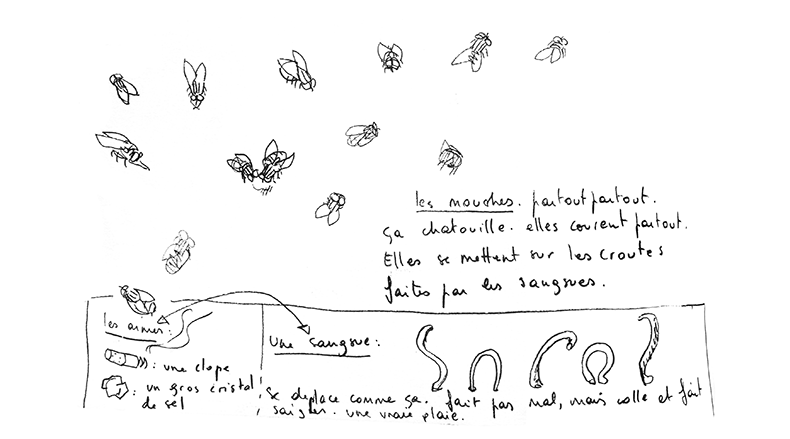 les mouches. partout partout.
ça chatouille. elles courent partout.
Elles se mettent sur les croutes
faites par les sangsues.
les armes:
: une clope
: un gros cristal
de sel
une sangsue:
se deplace comme ça. fait pas mal, mais colle et fait
saigner. une vraie plaie.